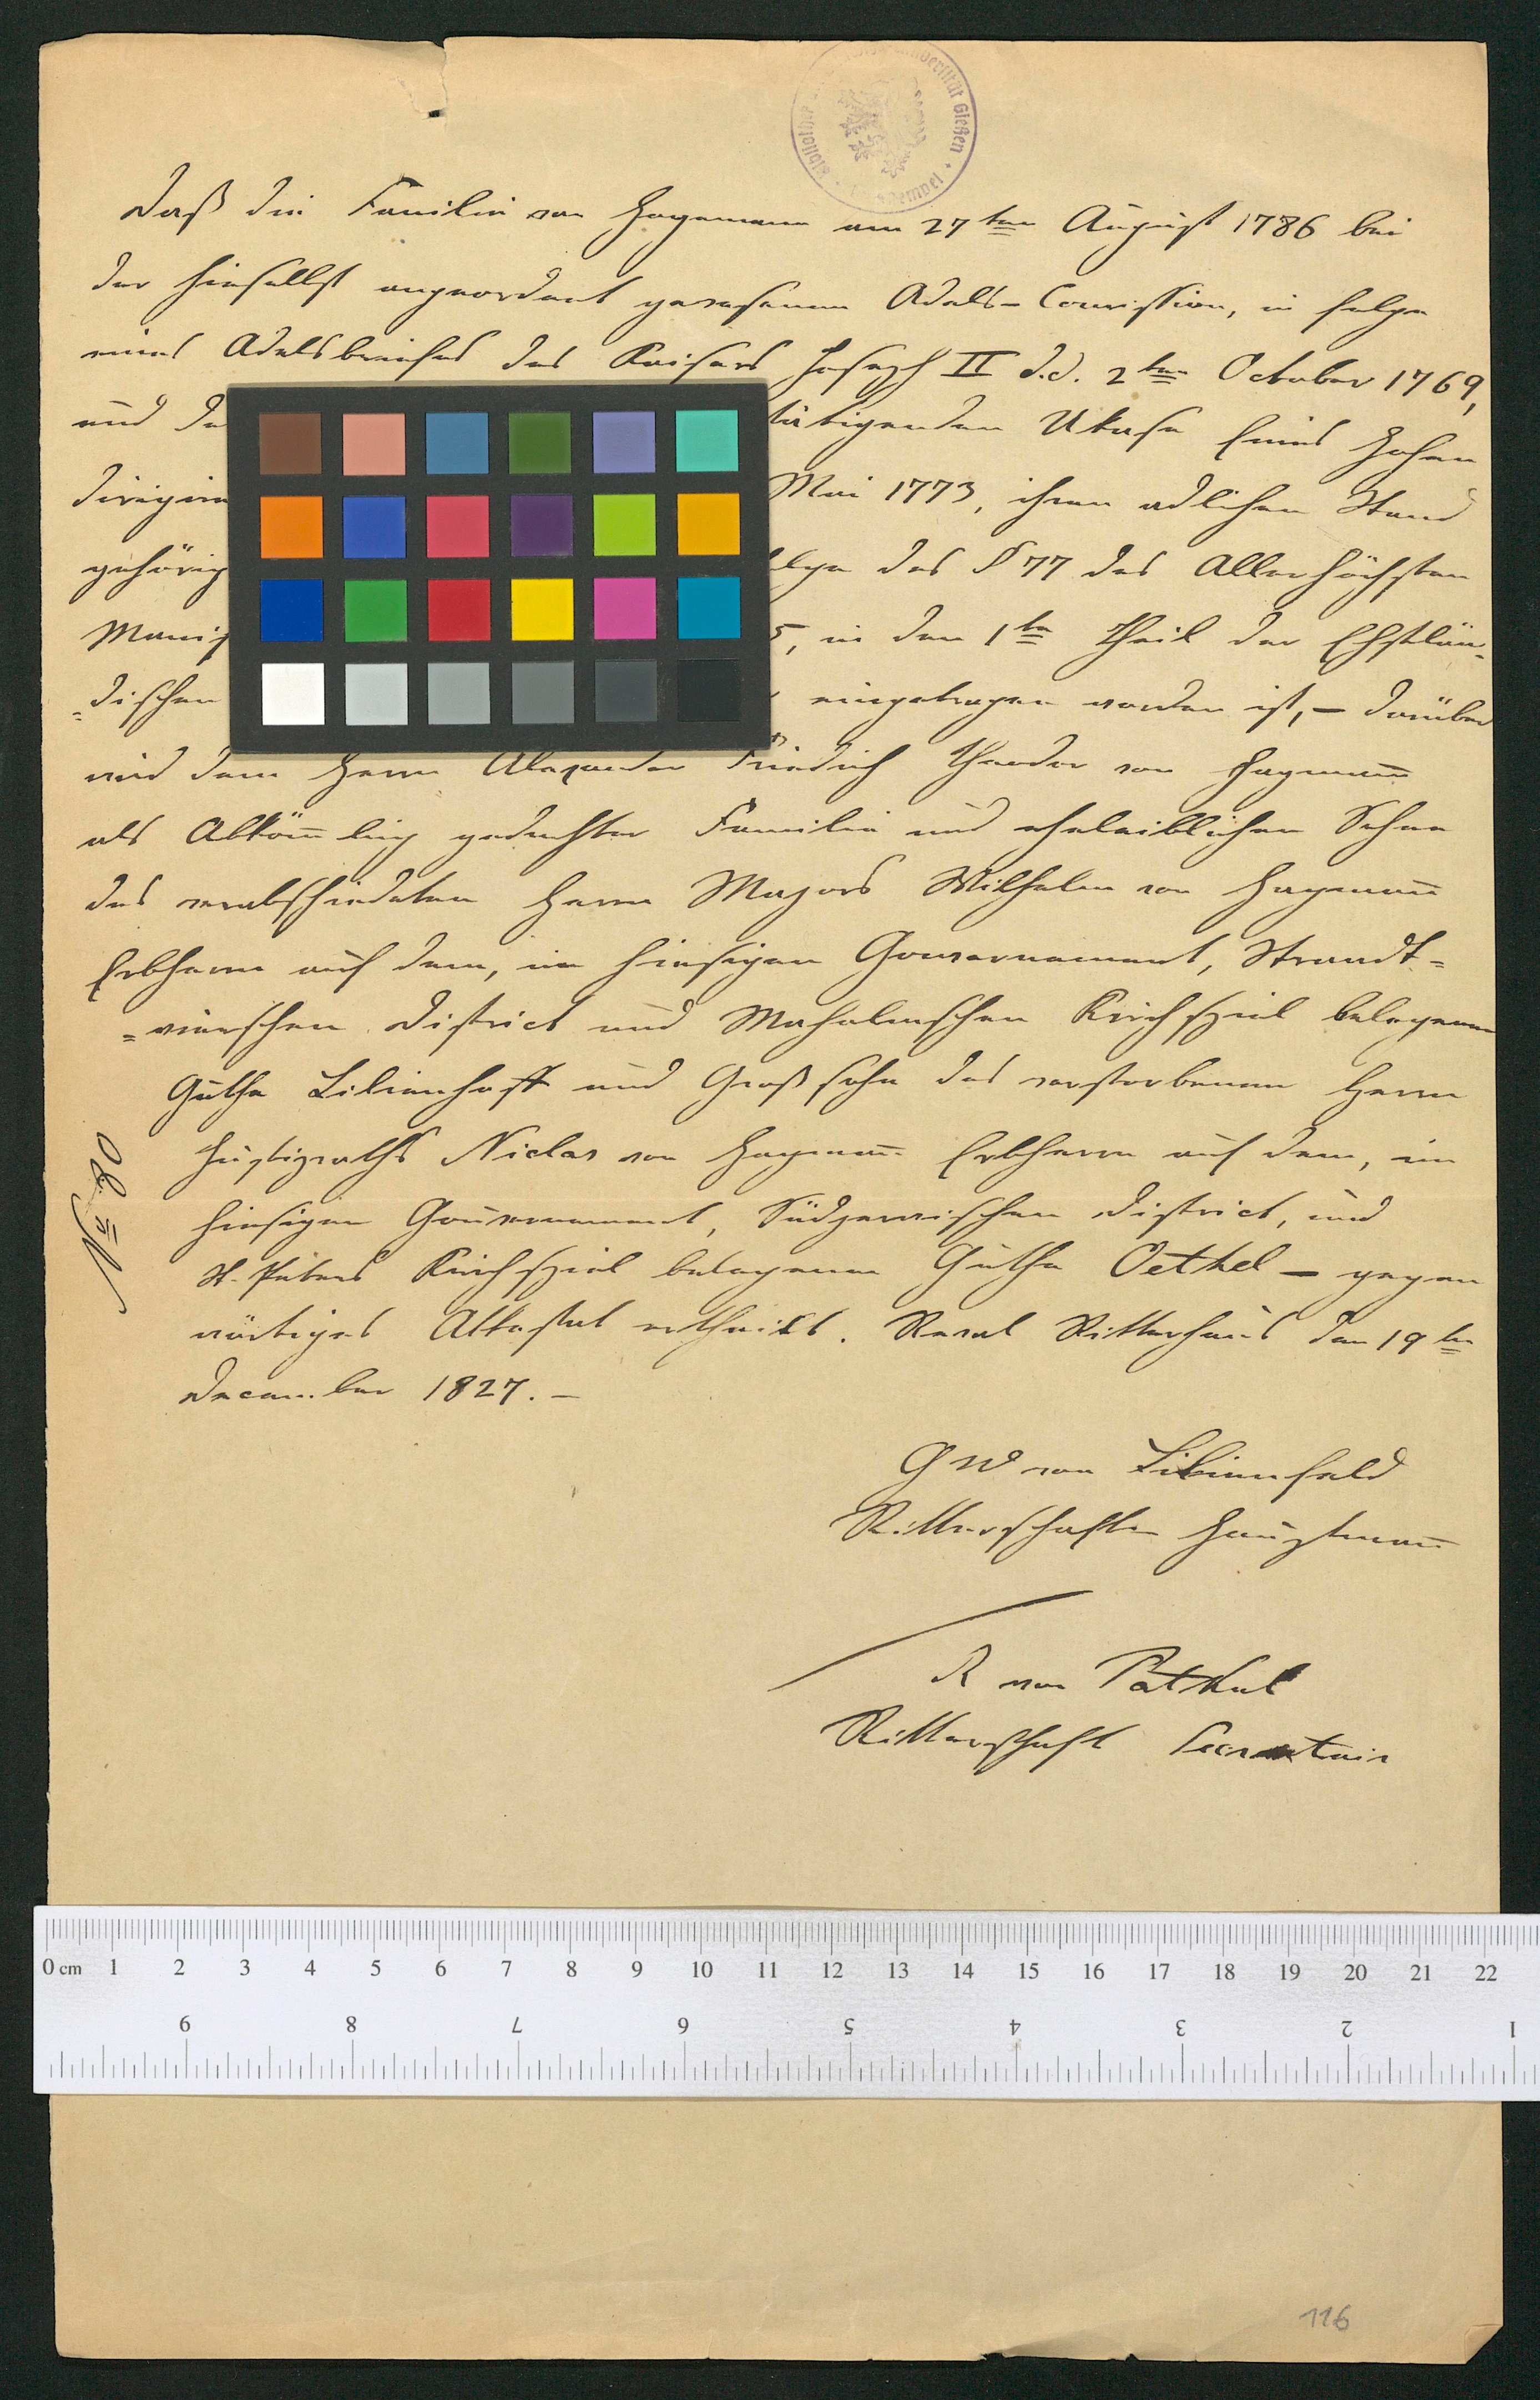 Daß die Familie von Hagemann am 27ten August 1786 bei
der hieselbst angeordnet gewesenen Adels-Comission, in folge
eines Adelsbriefes des Kaisers Joseph II d.d. 2ten October 1769,
und de tätigenden Ukase Eines Hohen
dirigire Mai 1773, ihren adlichen Stand
gehörig lge des § 77 des Allerhöchsten
Manif 5, in den 1ten Theil der Ehstlän-
=dischen eingetragen worden ist, – darüber
wird dem Herrn Alexander Friedrich Theodor von Hagemann
als Abkömling gedachter Familie und eheleiblichen Sohne
des verabschiedeten Herrn Majors Wilhelm von Hagemann
Erbherrn auf dem, im hiesigen Gouvernement, Strandt=
=wierschen District und Maholmschen Kirchspiel belegenen
Guthe Lilienhoff und Großsohn des verstorbenen Herrn
Justizraths Niclas von Hagemann Erbherrn auf dem, im
hiesigen Gouvernement, Südjerwischen District, und
St. Petris Kirchspiel belegenen Guthe Oethel – gegen
wärtiges Attestat ertheilt. Reval Ritterhaus den 19ten
December 1827. –
G W von Lilienfeld
Ritterschafts Hauptmann
R von Patkul
Ritterschaft Secretair
Universität Gießen
0 cm 1 2 3 4 5 6 7 8 9 10 11 12 13 14 15 16 17 18 19 20 21 22
9 8 7 6 5 4 3 2 1
116